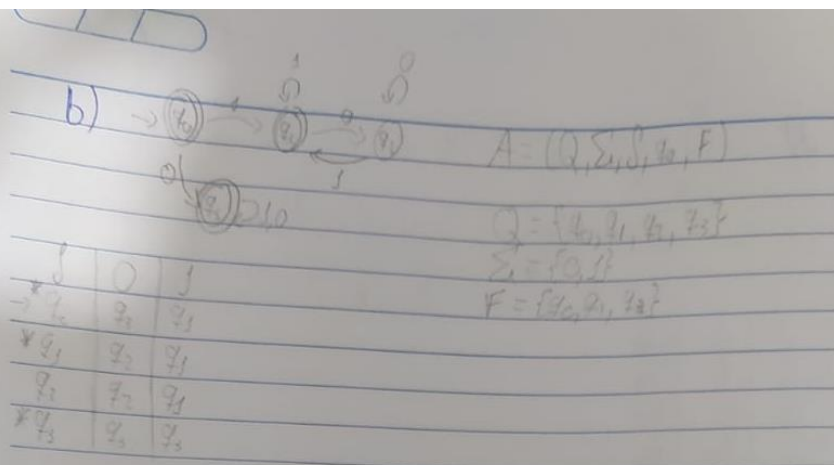 b)
→ q₀ 1 q₁ 0 q₂
1 0
1
0 q₃ 1,0
A = (Q, Σ, δ, q₀, F)
Q = {q₀, q₁, q₂, q₃}
Σ = {0,1}
F = {q₀, q₁, q₃}
δ 0 1
→* q₀ q₃ q₁
* q₁ q₂ q₁
q₂ q₂ q₁
* q₃ q₃ q₃